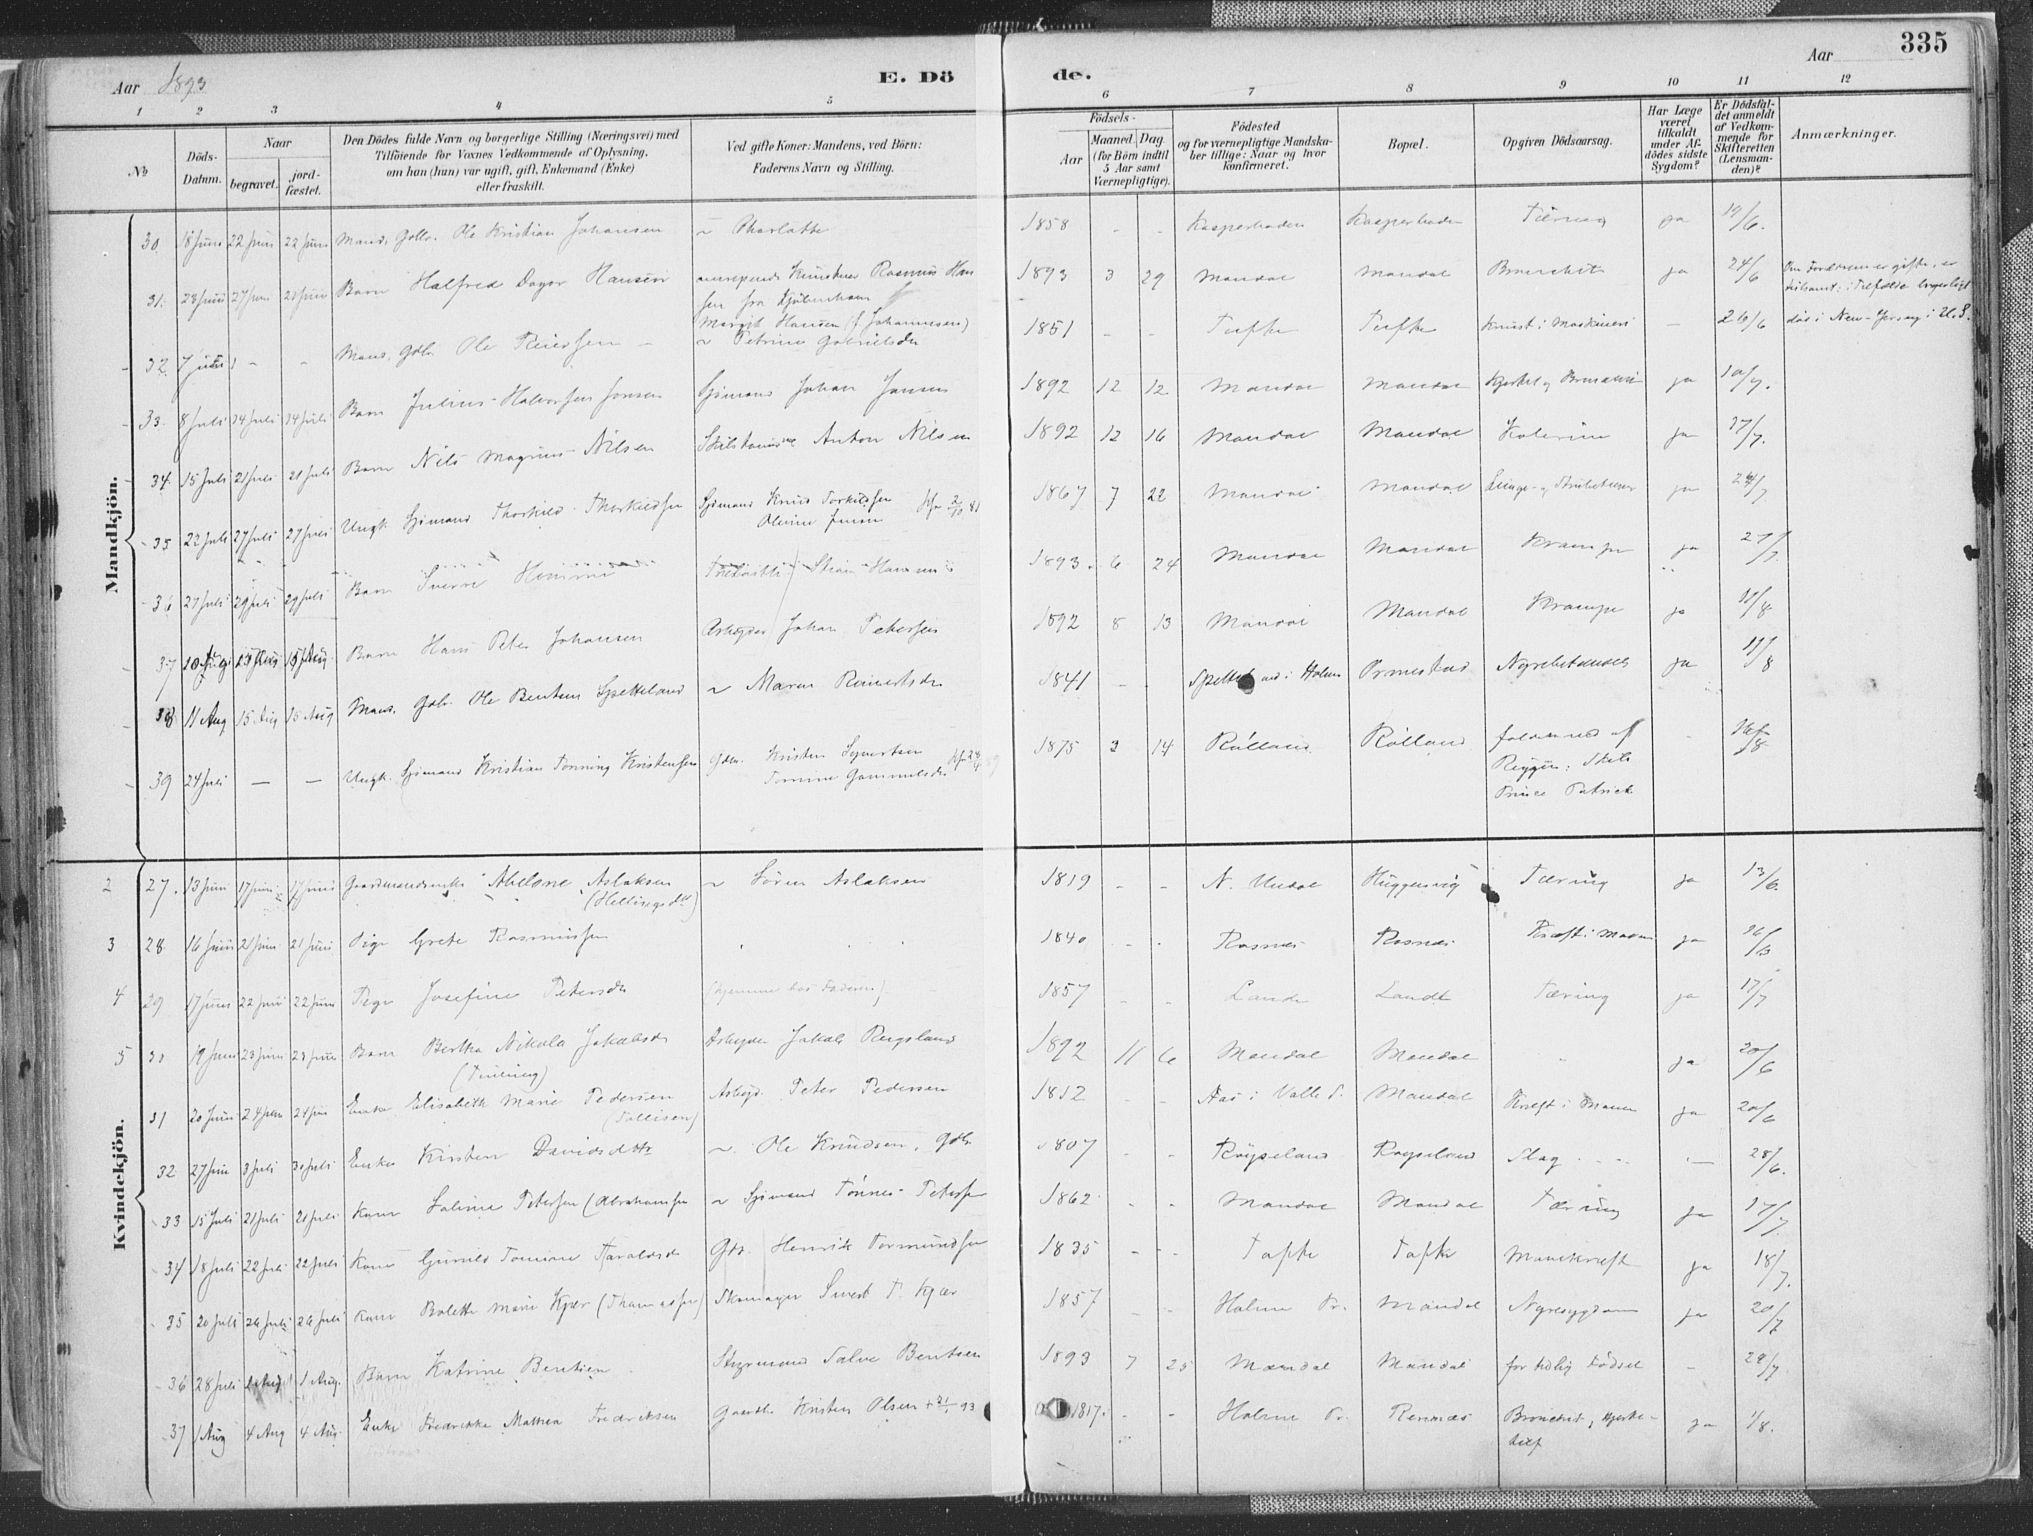 335
Aar 1893
E. Dö
de.
Aar
1 2 3 4 5 6 7 8 9 10 11 12
No
Döds-
Datum.
Naar
begravet.
jord-
fæstet.
Den Dödes fulde Navn og borgerlige Stilling (Næringsvei) med
Tilföiende for Voxnes Vedkommende af Oplysning,
om han (hun) var ugift, gift, Enkemand (Enke)
eller fraskilt.
Ved gifte Koner: Mandens, ved Börn:
Faderens Navn og Stilling.
Födsels-
Aar
Maaned.
Dag.
(for Börn indtil
5 Aar samt
Værnepligtige).
Födested
og for værnepligtige Mandska-
ber tillige: Naar og hvor
konfirmeret.
Bopæl.
Opgiven Dödsaarsag.
Har Læge
været
tilkaldt
under Af-
dödes sidste
Sygdom?
Er Dödsfal-
det anmeldt
af Vedkom-
mende for
Skifteretten
(Lensman-
den)?
Anmærkninger.
Mandkjön.
30 18 Juni 22 Juni 22 Juni Mand, Gdbr. Ole Kristian Johansen ~ Charlotte 1858 - - Kasperheden Kasperheden Tæring ja 19/6.
31. 23 Juni 27 Juni 27 Juni Barn Halfred Dagar Hansen Rasmus Han
sen fra Kjöbenhavn
Margit Hansen (f Johannesen) 1893 3 29 Mandal Mandal Bronchit ja 24/6
död i New-Jersey i U.S.
32 7 Juni - - Mand, Gdbr Ole Reiersen ~ Petrine Gabrielsdr 1851 - - Tufte Tufte - 26/6
33. 8 Juli 14 Juli 14 Juli Barn Julius Halvorsen Jansen Sjömand Johan Jansen 1892 12 12 Mandal Mandal ja 10/7.
34. 15 Juli 21 Juli 21 Juli Barn Nils Magnus Nilsen Anton Nilsen 1892 12 16 Mandal Mandal Kolerine ja 17/7.
35 22 Juli 27 Juli 27 Juli Ungk. Sjömand Thorkild Thorkildsen Sjömand Knud Torkildsen
Oline Jensen 1867 7 22 Mandal Mandal ja 24/7
36 27 Juli 29 Juli 29 Juli Barn Sverre 1893 6 24 Mandal Mandal Krampe ja 27/7
37 10 Aug 15 Aug Barn Hans Peter Johansen Arbeider Johan Petersen 1892 8 13 Mandal Mandal Krampe ja
38 11 Aug 15 Aug 15 Aug Mand, Gdbr. Ole Bentsen Spetteland ~ Maren Reiertsdr 1841 - - i Holme Ormestad ja 11/8
39 24 Juli — — Ungk. Sjömand Kristian Tönning Kristensen Gdbr. Kristen Syvertsen
Tomine Gammelsdr 1875 3 14 Rölland Rölland faldt ned af
Riggen: Skib
Prince Patrick
Kvindekjön.
2 27. 13 Juni 17 Juni 17 Juni Gaardmandsenke Abelone Aslaksen ~ Sören Aslaksen 1819 - - N. Undal Huggensvig Tæring ja 13/6.
3 28 16 Juni 21 Juni 21 Juni Pige Grete Rasmussen 1840 - - Rosnes Rosnes Kræft i Maven ja 16/6
4 29 17 Juni 22 Juni 22 Juni Pige Josefine Petersdr (hjemme hos Faderen) 1857 - - Lande Landt Tæring ja 17/7
5 30 19 Juni 23 Juni 23 Juni Barn Bertha Nikola Jakobsdr Arbeider Jakob Rugsland 1892 11 6 Mandal Mandal ja 20/6
31 20 Juni 24 Juni 24 Juni Enke Elisabeth Marie Pedersen
(Tollisen) Arbeid. Peter Pedersen 1812 - - Aas i Valle S. Mandal Kræft i Maven ja 20/6
32 27 Juni 3 Juli 30 Juli Enke Kirsten Davidsdtr ~ Ole Knudsen, Gdbr 1807 - - Röyseland Röyseland Slag — 28/6.
33 15 Juli 21 Juli 21 Juli Kone Saline Petersen (Abrahamsen ~ Sjömand Tönnes Petersen 1862 - - Mandal Mandal Tæring ja 17/7.
34 18 Juli 22 Juli 22 Juli Kone Gunild Tomine Taraldsdr Gbr. Henrik Tormundsen 1835 - - Tofte Tofte Mavekræft ja 18/7.
35 20 Juli 26 Juli 26 Juli Kone Bolette Marie Kjær (Thomassen) Skomager Sivert T. Kjær 1857 - - Holme Pr. Mandal Nyresygdom ja 20/7
36 28 Juli 1 Aug 1 Aug. Barn Katrine Bentsen Styrmand Salve Bentsen 1893 7 25 Mandal Mandal for tidlig Födsel - 28/7.
37 1 Aug 4 Aug 4 Aug. Enke Fredrikke Mathea Fredriksen Gaardbr. Kristen Olsen 1817. - - Holme Pr. Rennæs Bronchit og Hjerte-
ja 1/8.